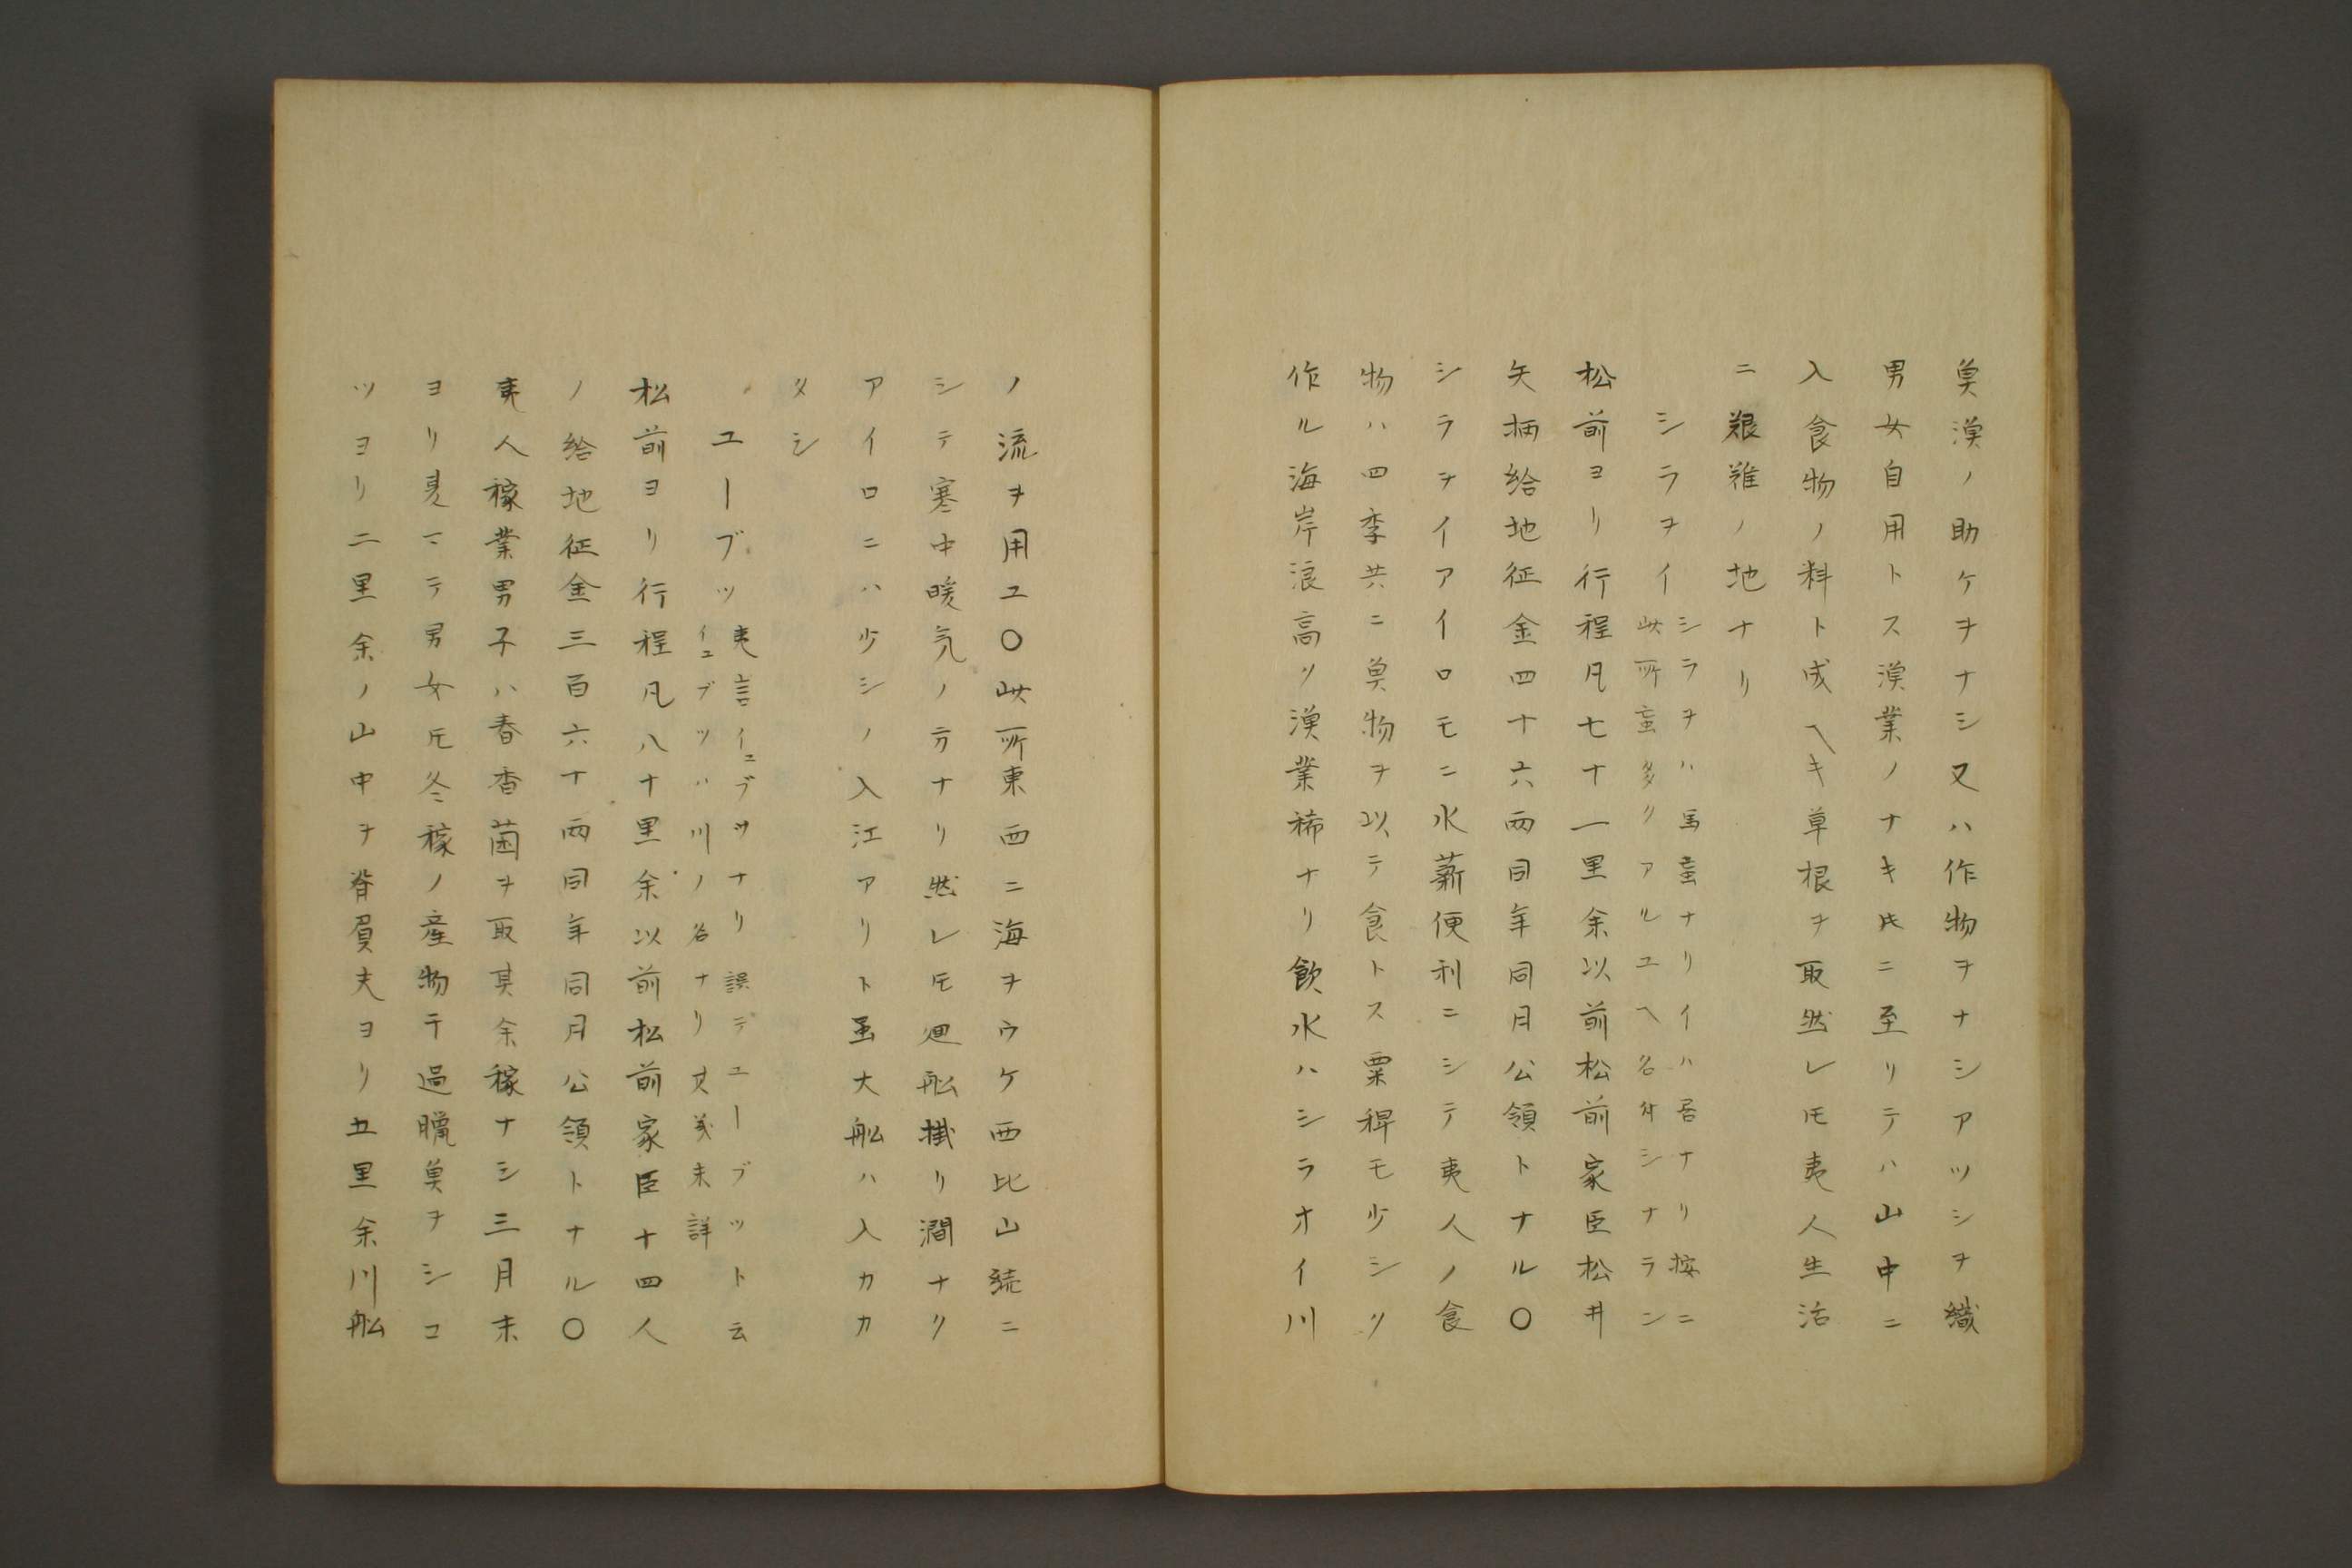 魚漁ノ助ケヲナシ又ハ作物ヲナシアツシヲ織
男女自用トス漁業ノナキ時ニ至リテハ山中ニ
入食物ノ料ト成ヘキ草根ヲ取然レ𪜈夷人生活
ニ艱難ノ地ナリ
シラヲイ
シラヲハ馬䖟ナリイハ居ナリ按ニ
此所䖟多クアルユヘ名付シナラン
松前ヨリ行程凡七十一里余以前松前家臣松井
矢柄給地征金四十六両同年同月公領トナル〇
シラヲイアイロモニ水薪便利ニシテ夷人ノ食
物ハ四季共ニ魚物ヲ以テ食トス粟稗モ少シク
作ル海岸浪高ク漁業稀ナリ飲水ハシラオイ川
ノ流ヲ用ユ〇此所東西ニ海ヲウケ西比山続ニ
シテ寒中暖気ノ方ナリ然レ𪜈廻舩掛リ澗ナク
アイロニハ少シノ入江アリト虽大舩ハ入カカ
タシ
ユーブツ
夷言イユブサナリ誤テユーブツト云
イユブツハ川ノ名ナリ其義未詳
松前ヨリ行程凡八十里余以前松前家臣十四人
ノ給地征金三百六十両同年同月公領トナル〇
夷人稼業男子ハ春香菌ヲ取其余稼ナシ三月末
ヨリ夏マテ男女𪜈冬稼ノ産物干過臘魚ヲシコ
ツヨリ二里余ノ山中ヲ脊負夫ヨリ五里余川舩